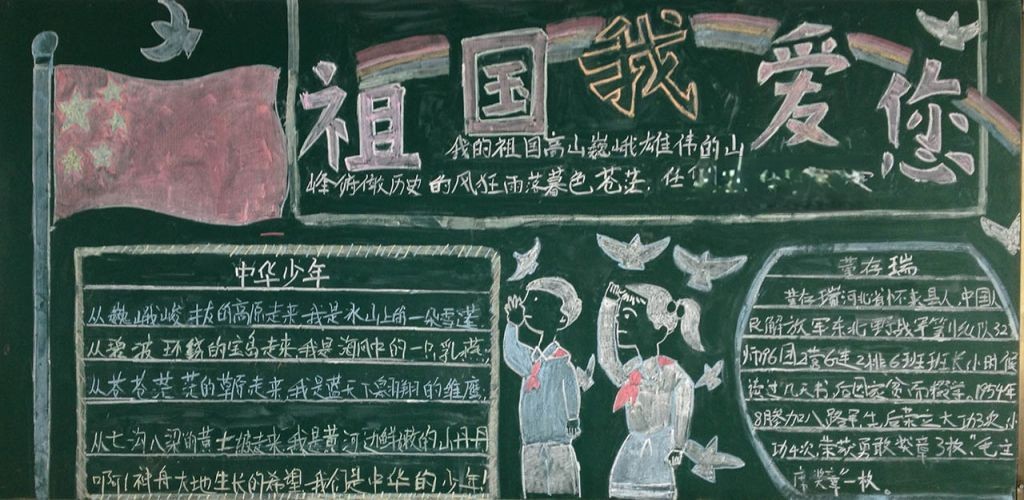 祖国我爱您
我的祖国高山巍峨雄伟的山
峰俯瞰历史的风狂雨落暮色苍茫,任
中华少年
从巍峨峻拔的高原走来,我是冰山上的一朵雪莲
从碧波环绕的宝岛走来,我是海风中的一只乳燕,
从苍苍茫茫的草原走来,我是蓝天下翱翔的雏鹰,
从七沟八梁的黄土坡走来,我是黄河边鲜嫩的山丹丹
啊!神舟大地生长的希望,我们是中华的少年!
董存瑞
董存瑞河北省怀来县人,中国人
民解放军东北野战军第 纵队32
师96团2营6连2排6班班长,小时候
读过几天书,后因家贫而辍学,1954年
8月参加八路军,先后荣立大功3次,小
功4次,荣获勇敢奖章3枚,"毛主
席奖章"一枚。